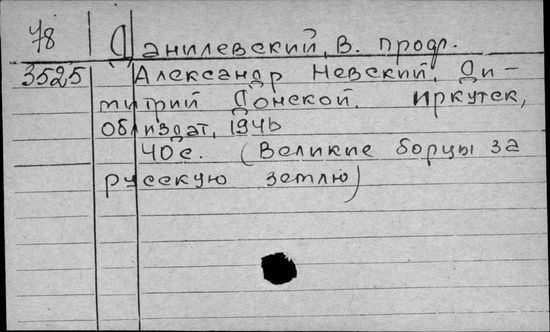 78 Данилевский, В. проф.
3525 Александр Невский, Ди-
митрий Донской. Иркутск,
Облиздат, 1946
40с. (Великие борцы за
русскую землю)